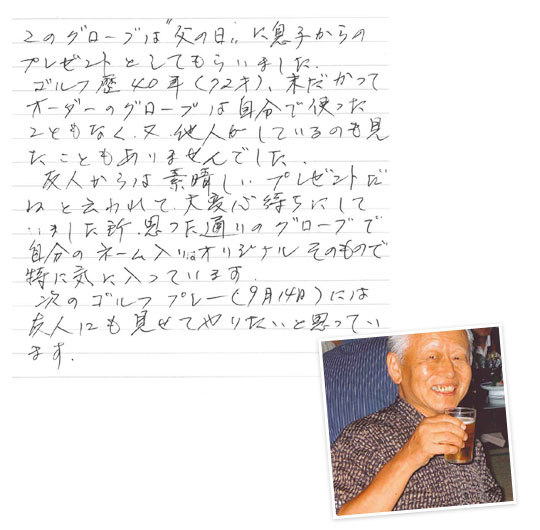 このグローブは"父の日"に息子からの
プレゼントとしてもらいました.
ゴルフ歴40年(72才)、未だかつて
オーダーのグローブは自分で使った
こともなく、又、他人がしているのも見
たこともありませんでした.
友人からは素晴しいプレゼントだ
ねと云われて、大変心待ちにして
いました所、思った通りのグローブで
自分のネーム入りはオリジナルそのもので
特に気に入っています.
次のゴルフプレー(9月14日)には
友人にも見せてやりたいと思ってい
ます.